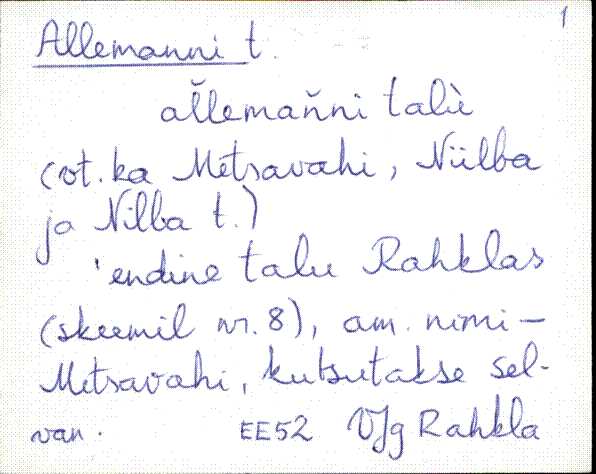 1
Allemanni t.
ăllemaňni talù
(vt. ka Metsavahi, Niilba
ja Nilba t.)
'endine talu Rahklas
(skeemil nr. 8), am. nimi -
Metsavahi, kutsutakse sel-
van. EE52 VJg Rahkla